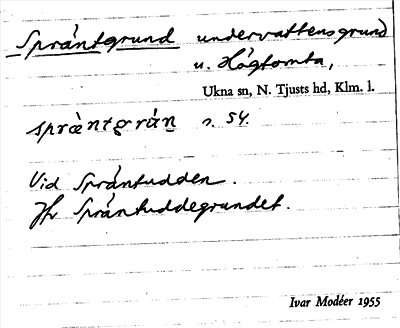 Språntgrund undervattensgrund
u. Högtomta,
Ukna sn, N. Tjusts hd, Klm. l.
s. 54.
Vid Språntudden.
Jfr Språntuddegrundet.
Ivar Modéer 1955